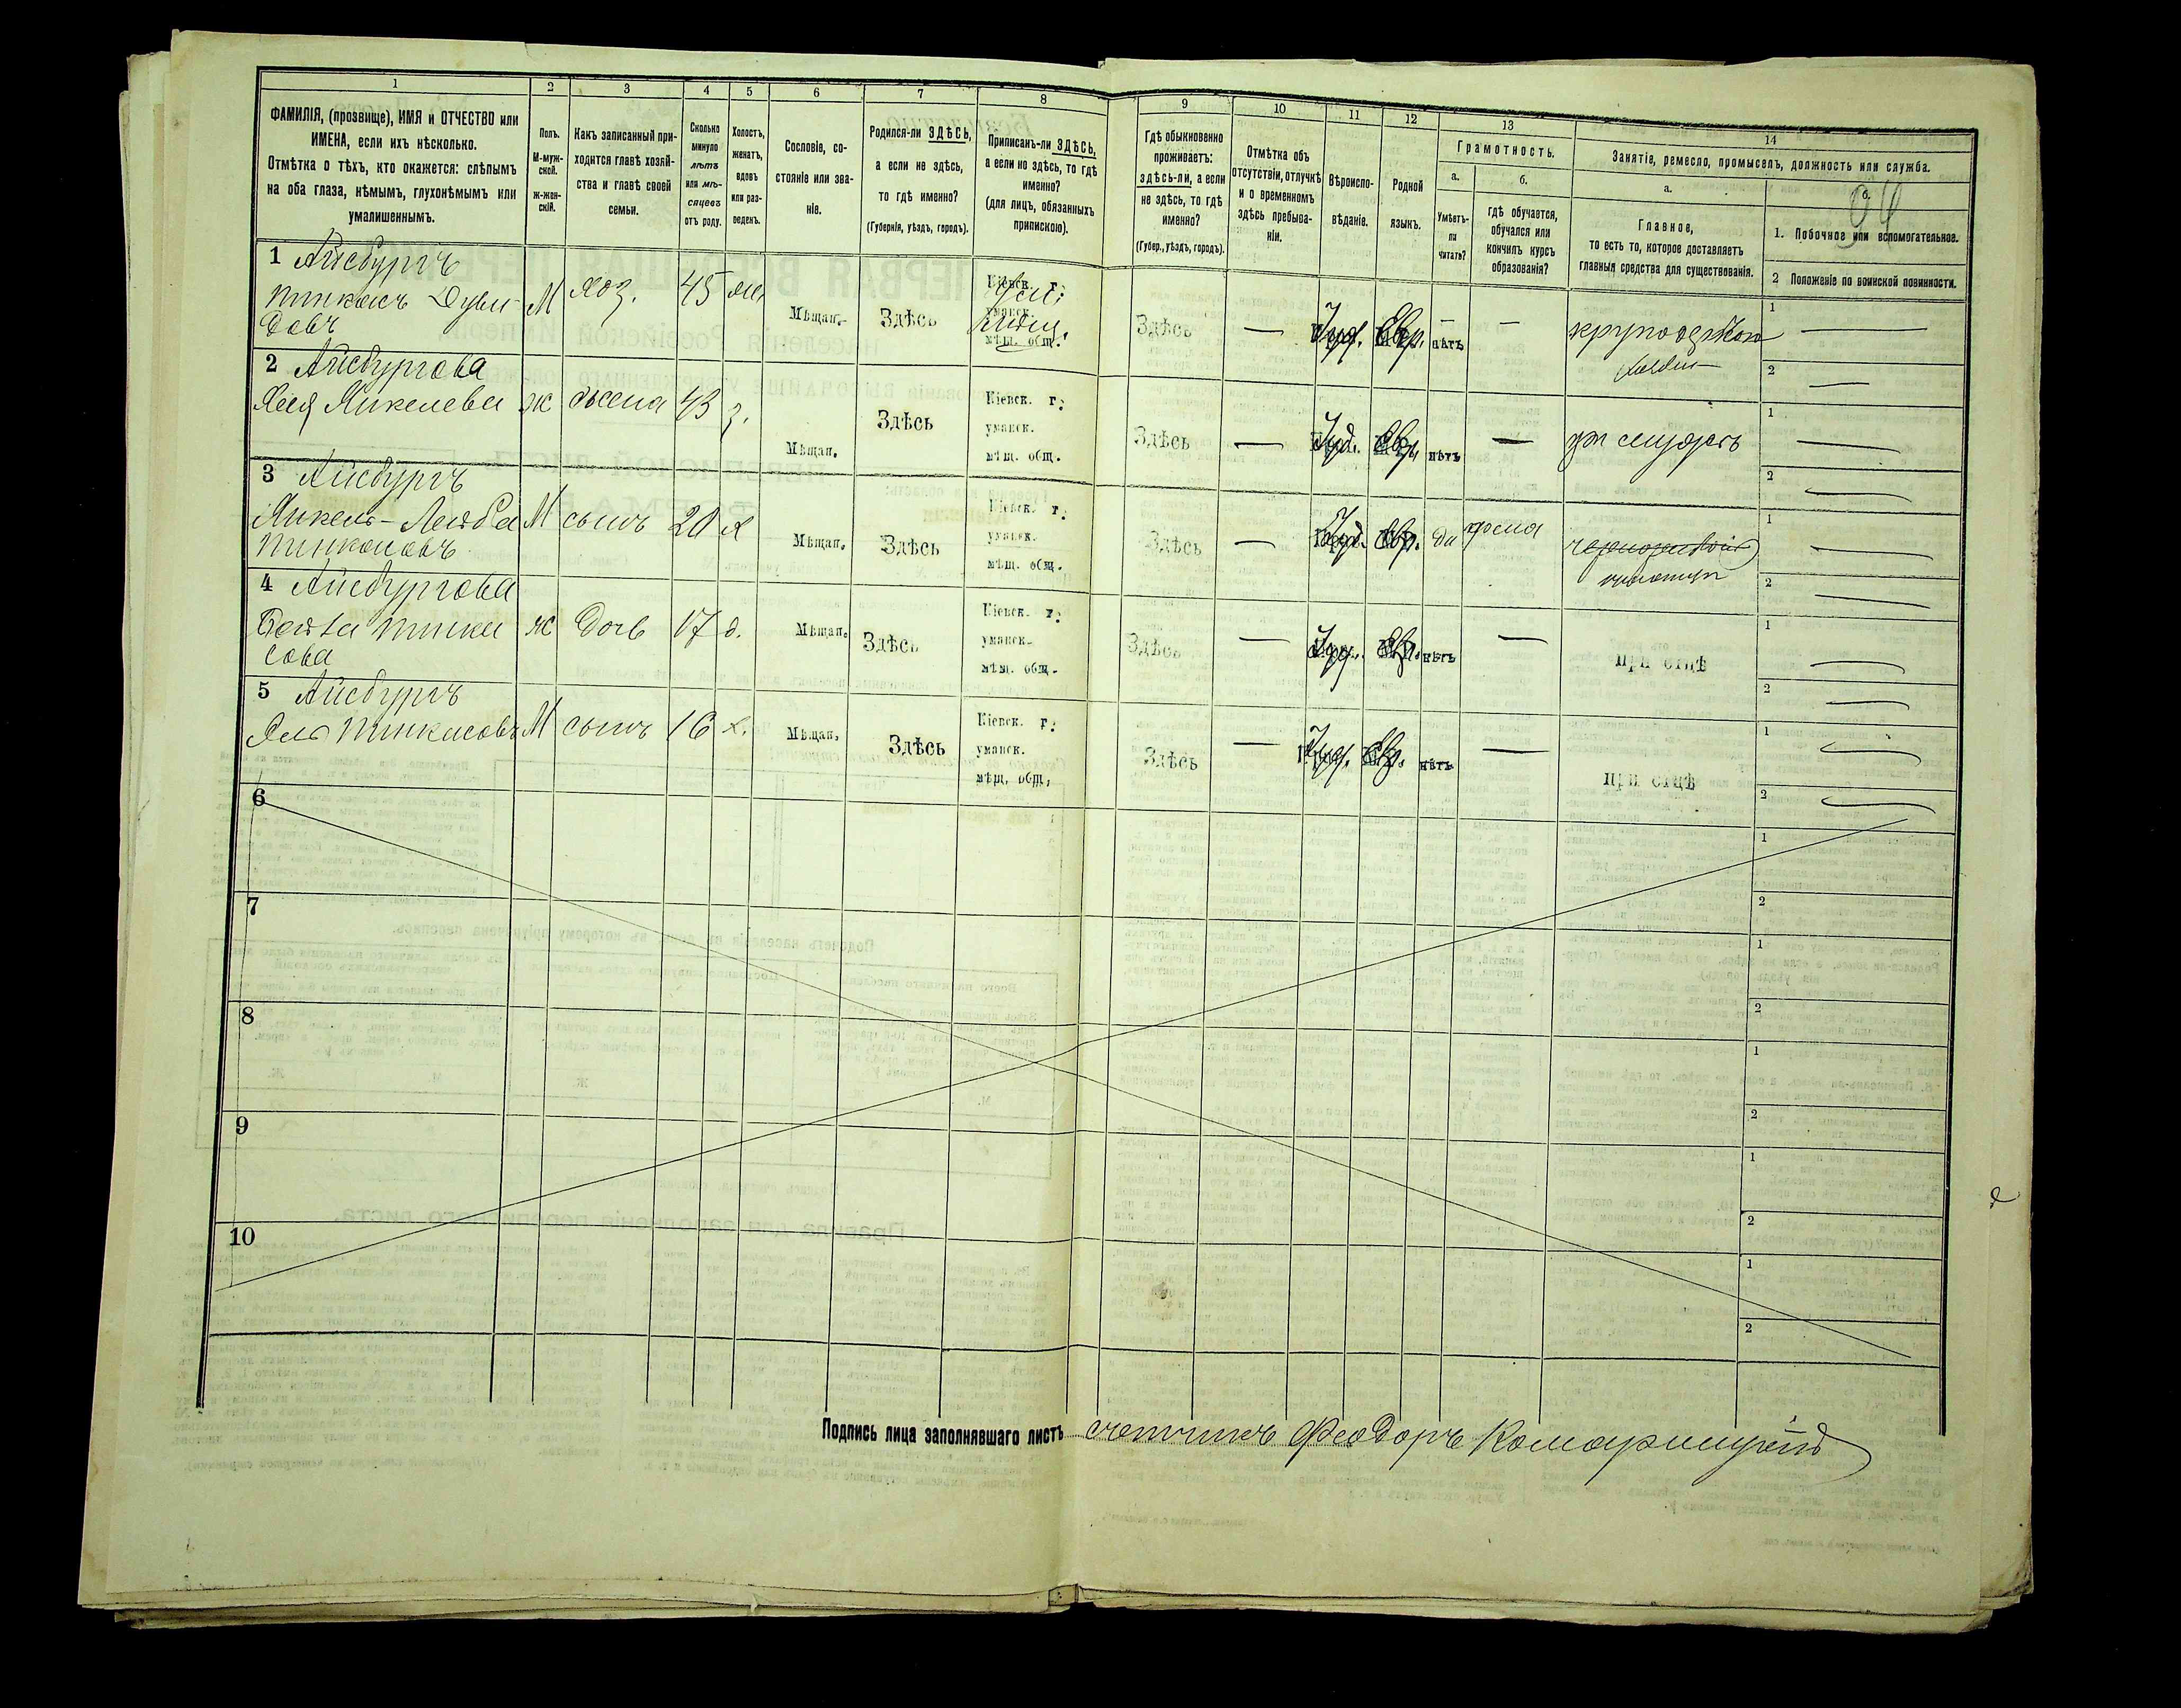 1
2
3
4
5
6
7
8
9
10
11
12
13
14
ФАМИЛІЯ, (прозвище), ИМЯ и ОТЧЕСТВО или
ИМЕНА, если ихъ нѣсколько.
Отмѣтка о тѣхъ, кто окажется: слѣпымъ
на оба глаза, нѣмымъ, глухонѣмымъ или
умалишеннымъ.
Полъ.
М-муж-
ской.
ж-жен-
скій.
Какъ записанный при-
ходится главѣ хозяй-
ства и главѣ своей
семьи.
Сколько
минуло
лѣтъ
или мѣ-
сяцевъ
отъ роду.
Холостъ,
женатъ,
вдовъ
или раз-
веденъ.
Сословіе, со-
стояніе или зва-
ніе.
Родился-ли ЗДѢСЬ,
а если не здѣсь,
то гдѣ именно?
(Губернія, уѣздъ, городъ).
Приписанъ-ли ЗДѢСЬ,
а если не здѣсь, то гдѣ
именно?
(для лицъ, обязанныхъ
припискою).
Гдѣ обыкновенно
проживаетъ:
здѣсь-ли, а если
не здѣсь, то гдѣ
именно?
(Губер., уѣздъ, городъ).
Отмѣтка объ
отсутствіи, отлучкѣ
и о временномъ
здѣсь пребыва-
ніи.
Вѣроиспо-
вѣданіе.
Родной
языкъ.
Грамотность.
а.
Умѣетъ-
ли
читать?
б.
гдѣ обучается,
обучался или
кончилъ курсъ
образованія?
Занятіе, ремесло, промыселъ, должность или служба.
а.
Главное,
то есть то, которое доставляетъ
главныя средства для существованія.
б.
1. Побочное или вспомогательное.
2 Положеніе по воинской повинности.
1 Айсбургъ
Пинкасъ Дуви-
довъ
М
хоз.
45
жен.
Мѣщан.
Здѣсь
Кіевск. г.
уманск.
мѣщ. общ.
Здѣсь
—
Іуд.
Евр.
нѣтъ
—
1
2
2 Айсбургова
Хая Янкелева
ж
жена
43
з.
Мѣщан.
Здѣсь
Кіевск. г.
уманск.
мѣщ. общ.
Здѣсь
—
Іуд.
Евр.
нѣтъ
—
при мужѣ
1
2
3 Айсбургъ
Янкель-Лейба
Пинкасовъ
М
сынъ
20
х
Мѣщан.
Здѣсь
Кіевск. г.
уманск.
мѣщ. общ.
Здѣсь
—
Іуд.
Евр.
да
дома
1
2
4 Айсбургова
Бейла Пинка
сова
ж
дочь
17
д.
Мѣщан.
Здѣсь
Кіевск. г.
уманск.
мѣщ. общ.
Здѣсь
—
Іуд.
Евр.
нѣтъ
—
при отцѣ
1
2
5 Айсбургъ
Пинкасовъ
М
сынъ
16
х.
Мѣщан.
Здѣсь
Кіевск. г.
уманск.
мѣщ. общ.
Здѣсь
—
Іуд.
Евр.
нѣтъ
—
при отцѣ
1
2
6
1
2
7
1
2
8
1
2
9
1
2
10
1
2
Подпись лица заполнявшаго листъ счетчикъ Феодоръ Комарницкій